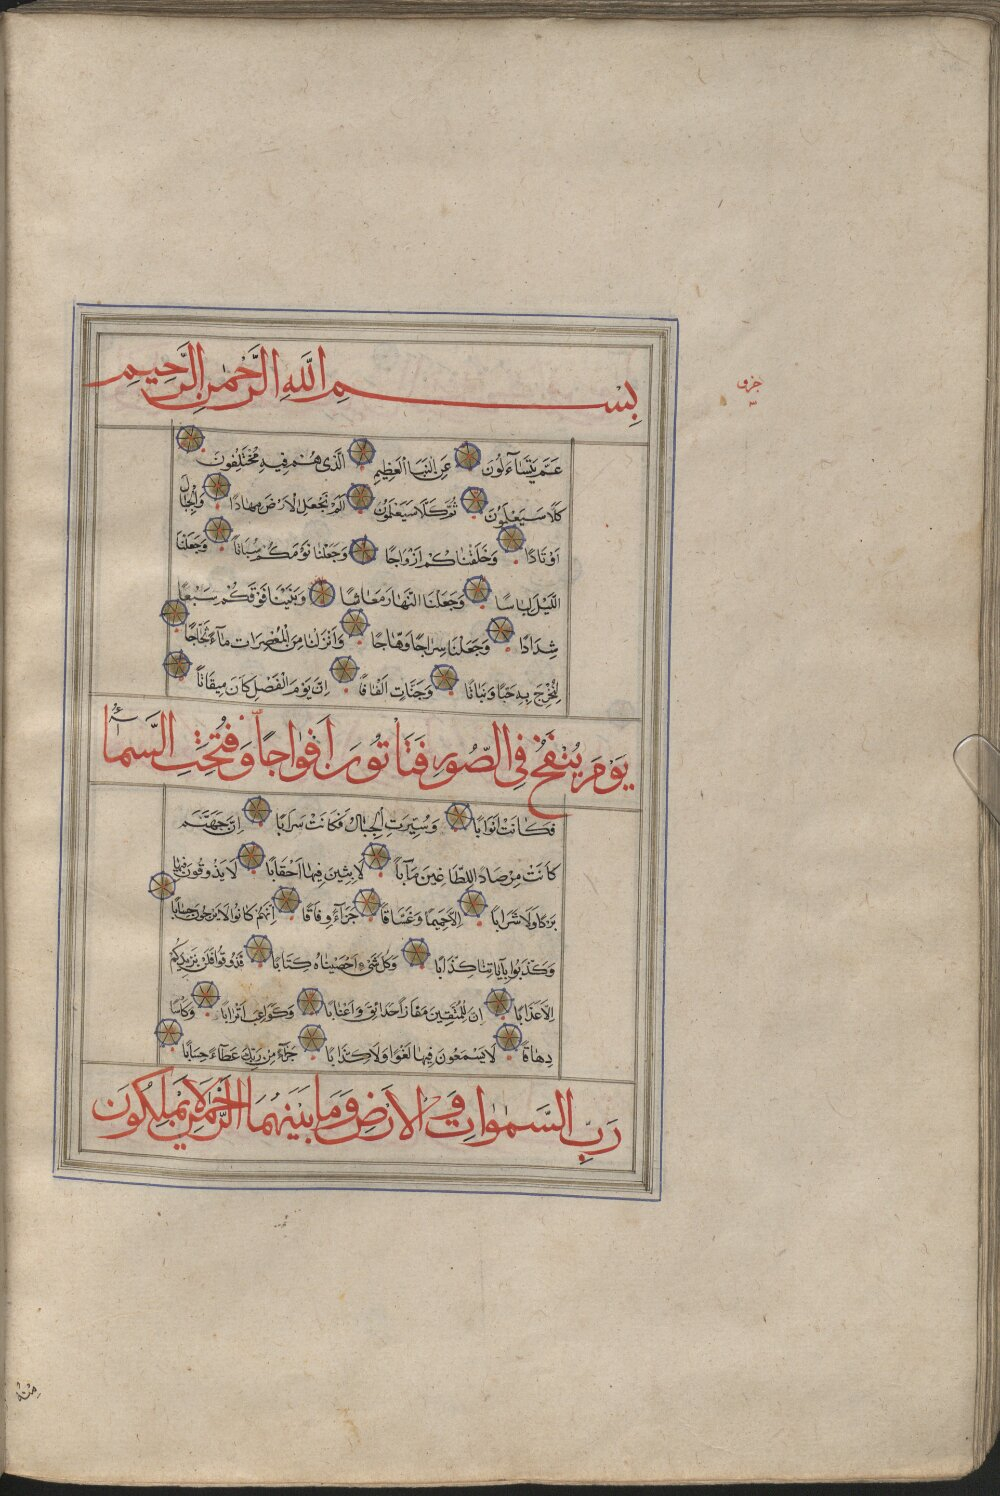 بِسْمِ اللَّهِ الرَّحْمٰنِ الرَّحِيمِ
جزو
عَمَّ يَتَسَآءَلُونَ عَنِ النَّبَاِ الْعَظِيمِ الَّذِى هُمْ فِيهِ مُخْتَلِفُونَ
كَلَّا سَيَعْلَمُونَ ثُمَّ كَلَّا سَيَعْلَمُونَ اَلَمْ نَجْعَلِ الْاَرْضَ مِهَادًا وَالْجِبَالَ
اَوْتَادًا وَخَلَقْنَاكُمْ اَزْوَاجًا وَجَعَلْنَا نَوْمَكُمْ سُبَاتًا وَجَعَلْنَا
اللَّيْلَ لِبَاسًا وَجَعَلْنَا النَّهَارَ مَعَاشًا وَبَنَيْنَا فَوْقَكُمْ سَبْعًا
شِدَادًا وَجَعَلْنَا سِرَاجًا وَهَّاجًا وَاَنْزَلْنَا مِنَ الْمُعْصِرَاتِ مَآءً ثَجَّاجًا
لِنُخْرِجَ بِهِ حَبًّا وَنَبَاتًا وَجَنَّاتٍ اَلْفَافًا اِنَّ يَوْمَ الْفَصْلِ كَانَ مِيقَاتًا
يَوْمَ يُنْفَخُ فِى الصُّورِ فَتَاْتُونَ اَفْوَاجًا وَفُتِحَتِ السَّمَآءُ
فَكَانَتْ اَبْوَابًا وَسُيِّرَتِ الْجِبَالُ فَكَانَتْ سَرَابًا اِنَّ جَهَنَّمَ
كَانَتْ مِرْصَادًا لِلطَّاغِينَ مَآبًا لَابِثِينَ فِيهَا اَحْقَابًا لَا يَذُوقُونَ فِيهَا
بَرْدًا وَلَا شَرَابًا اِلَّا حَمِيمًا وَغَسَّاقًا جَزَآءً وِفَاقًا اِنَّهُمْ كَانُوا لَا يَرْجُونَ حِسَابًا
وَكَذَّبُوا بِآيَاتِنَا كِذَّابًا وَكُلَّ شَىْءٍ اَحْصَيْنَاهُ كِتَابًا فَذُوقُوا فَلَنْ نَزِيدَكُمْ
اِلَّا عَذَابًا اِنَّ لِلْمُتَّقِينَ مَفَازًا حَدَائِقَ وَاَعْنَابًا وَكَوَاعِبَ اَتْرَابًا وَكَاْسًا
دِهَاقًا لَا يَسْمَعُونَ فِيهَا لَغْوًا وَلَا كِذَّابًا جَزَآءً مِنْ رَبِّكَ عَطَآءً حِسَابًا
رَبِّ السَّمٰوَاتِ وَالْاَرْضِ وَمَا بَيْنَهُمَا الرَّحْمٰنِ لَا يَمْلِكُونَ
مِنْهُ